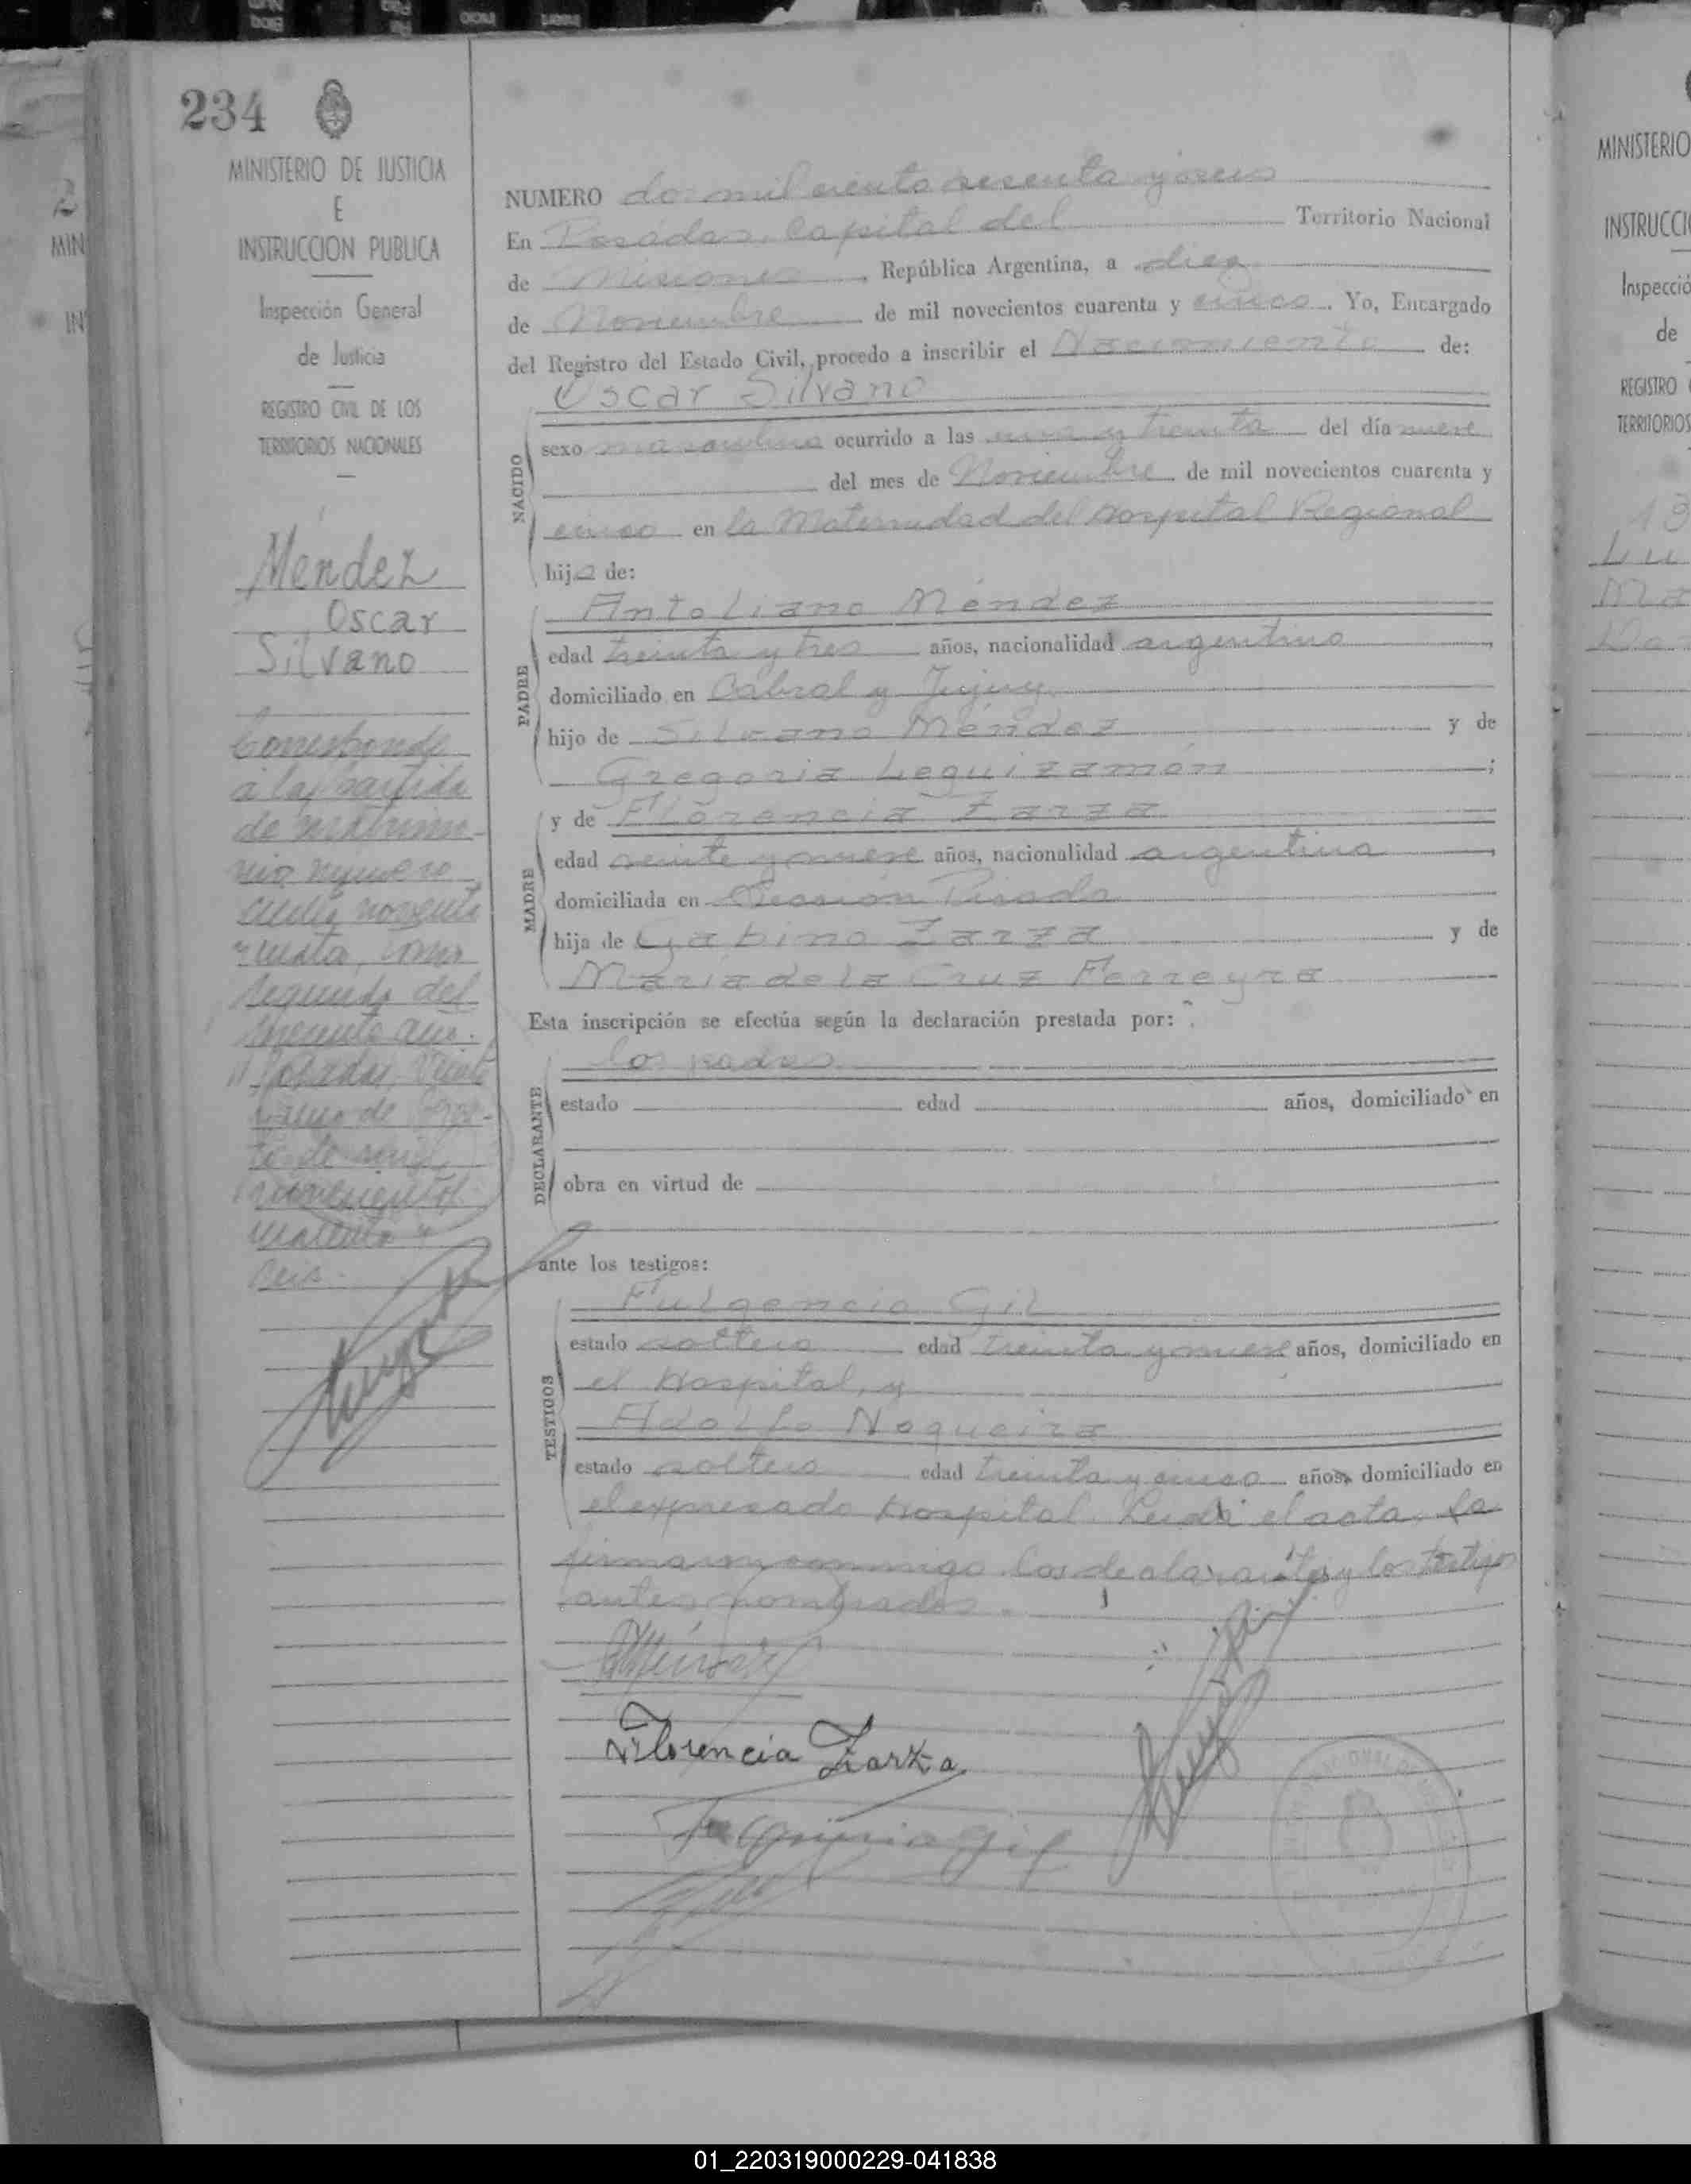 234
MINISTERIO DE JUSTICIA
E
INSTRUCCION PUBLICA
Inspección General
de Justicia
REGISTRO CIVIL DE LOS
TERRITORIOS NACIONALES
Méndez
Oscar
Silvano
Corresponde
a la partida
de matrimo-
nio número
segundo del
Posadas,
de mil
novecientos
cuarenta y
seis.
NUMERO dos mil ciento sesenta y seis
En Posadas, Capital del Territorio Nacional
de Misiones, República Argentina, a diez
de Noviembre de mil novecientos cuarenta y cinco. Yo, Encargado
del Registro del Estado Civil, procedo a inscribir el Nacimiento de:
Oscar Silvano
NACIDO
sexo masculino ocurrido a las una y treinta del día nueve
del mes de Noviembre de mil novecientos cuarenta y
cinco en la Maternidad del Hospital Regional
hijo de:
PADRE
Antoliano Méndez
edad treinta y tres años, nacionalidad argentino
domiciliado en Cabral y Jujuy
hijo de Silvano Méndez y de
Gregoria Leguizamón;
MADRE
y de Florencia Zarza
edad veinte y nueve años, nacionalidad argentina
domiciliada en
hija de Gabino Zarza y de
María de la Cruz Ferreyra
Esta inscripción se efectúa según la declaración prestada por:
DECLARANTE
los padres
estado edad años, domiciliado en
obra en virtud de
ante los testigos:
TESTIGOS
Fulgencio Gil
estado soltero edad treinta y nueve años, domiciliado en
el Hospital, y
Adolfo Nogueira
estado soltero edad treinta y cinco años, domiciliado en
el expresado Hospital. Leída el acta, la
firmaron conmigo los declarantes y los testigos
antes nombrados.
Florencia Zarza
MINISTERIO
INSTRUCCI
Inspecció
de
REGISTRO
TERRITORIOS
01_220319000229-041838